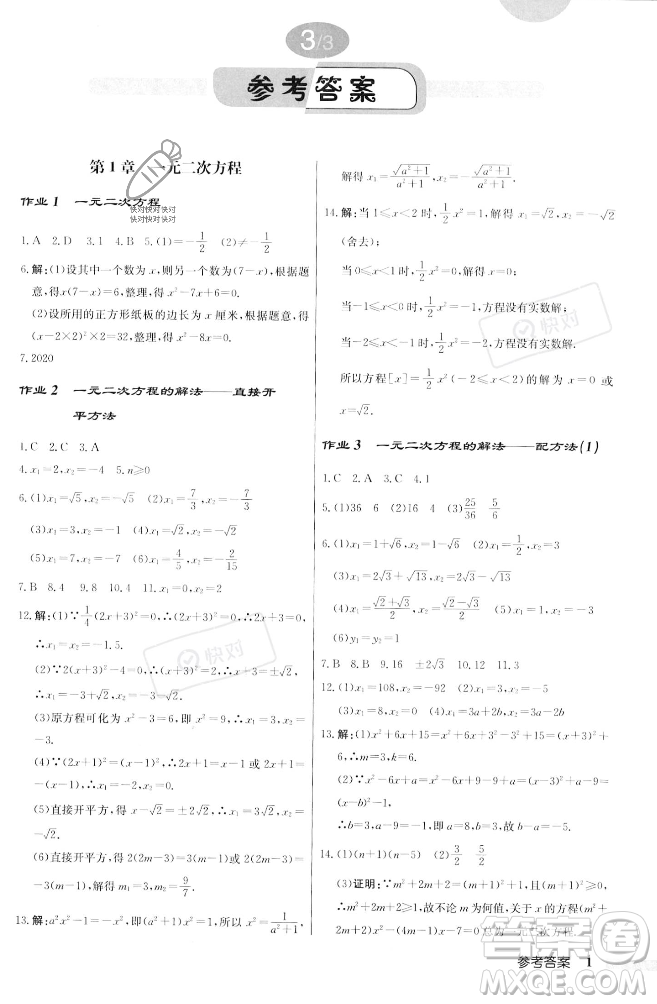 3/3
参考答案
第1章 一元二次方程
作业1 一元二次方程
快对快对快对
快对快对快对
1.A 2.D 3.1 4.B 5.(1)=-1/2 (2)≠-1/2
6.解:(1)设其中一个数为x,则另一个数为(7-x),根据题
意,得x(7-x)=6,整理,得x²-7x+6=0.
(2)设所用的正方形纸板的边长为x cm,根据题意,得
(x-2×2)²×2=32,整理,得x²-8x=0.
7.2020
作业2 一元二次方程的解法——直接开
平方法
1.C 2.C 3.A
4.x₁=1,x₂=-4 5.n≥0
6.(1)x₁=√5,x₂=-√5 (2)x₁=7/3,x₂=-7/3
(3)x₁=3,x₂=-3 (4)x₁=√2,x₂=-√2
(5)x₁=7,x₂=-7 (6)x₁=4/5,x₂=-2/15
7.B 8.4 9.8 10.x₁=0,x₂=2
12.解:(1)∵1/4(2x+3)²=0,∴(2x+3)²=0,∴2x+3=0,
∴x₁=x₂=-1.5.
(2)∵2(x+3)²-4=0,∴(x+3)²=2,∴x+3=±√2,
∴x₁=-3+√2,x₂=-3-√2.
(3)原方程可化为x²-3=6,即x²=9,∴x₁=3,x₂=
-3.
(4)∵(2x+1)²=(x-1)²,∴2x+1=x-1或2x+1=
-(x-1),∴x₁=-2,x₂=0.
(5)直接开平方,得x-√2=±2√2,即x₁=3√2,x₂=
-√2.
(6)直接开平方,得2(2m-3)=3m或2(2m-3)=
-3m,解得m₁=6/7,
13.解:a²x²-1=-x²,即(a²+1)x²=1,所以x²=1/(a²+1),
解得x₁=√(a²+1)/(a²+1),x₂=-√(a²+1)/(a²+1).
14.解:当1≤x<2时,1/2x²=1,解得x₁=√2,x₂=-√2
(舍去);
当0≤x<1时,1/2x²=0,解得x=0;
当-1≤x<0时,1/2x²=-1,方程没有实数解;
当-2≤x<-1时,1/2x²=-2,方程没有实数解.
所以方程[x]=1/2x²(-2≤x<2)的解为x=0或
x=√2.
作业3 一元二次方程的解法——配方法(1)
1.C 2.A 3.C 4.1
5.(1)36 6 (2)16 -4 (3)25/36 5/6
6.(1)x₁=1+√6,x₂=1-√6 (2)x₁=x₂=1/2
(3)x₁=2√3+√13,x₂=2√3-√13
(4)x₁=(√2+√3)/2,x₂=(√2-√3)/2 (5)x₁=0,x₂=5
(6)y₁=y₂=1
7.B 8.C 9.16 ±2√3 10.12 11.3
12.(1)x₁=108,x₂=-92 (2)x₁=3,x₂=-5
(3)x₁=2,x₂=-7 (4)x₁=3a+b,x₂=3a-b
13.解:(1)x²+6x+15=x²+6x+9+6=(x+3)²+
6,∴m=3,k=6.
(2)∵x²-6x+a=x²-6x+9-9+a=(x-3)²+a-9=
(x-b)²-1,
∴b=3,a-9=-1,即a=8,b=3,故a-b=5.
14.(1)(n+1)(n-5) (2)3/2 5/2
(3)证明:∵m²+2m+2=m²+2m+1-1+2=(m+
1)²+1>0,故不论m为何值,关于x的方程(m²+
2m+2)x²-4mx-1=0总为一元二次方程.
快对
快对
答案圈
MXQE.COM
参考答案 1